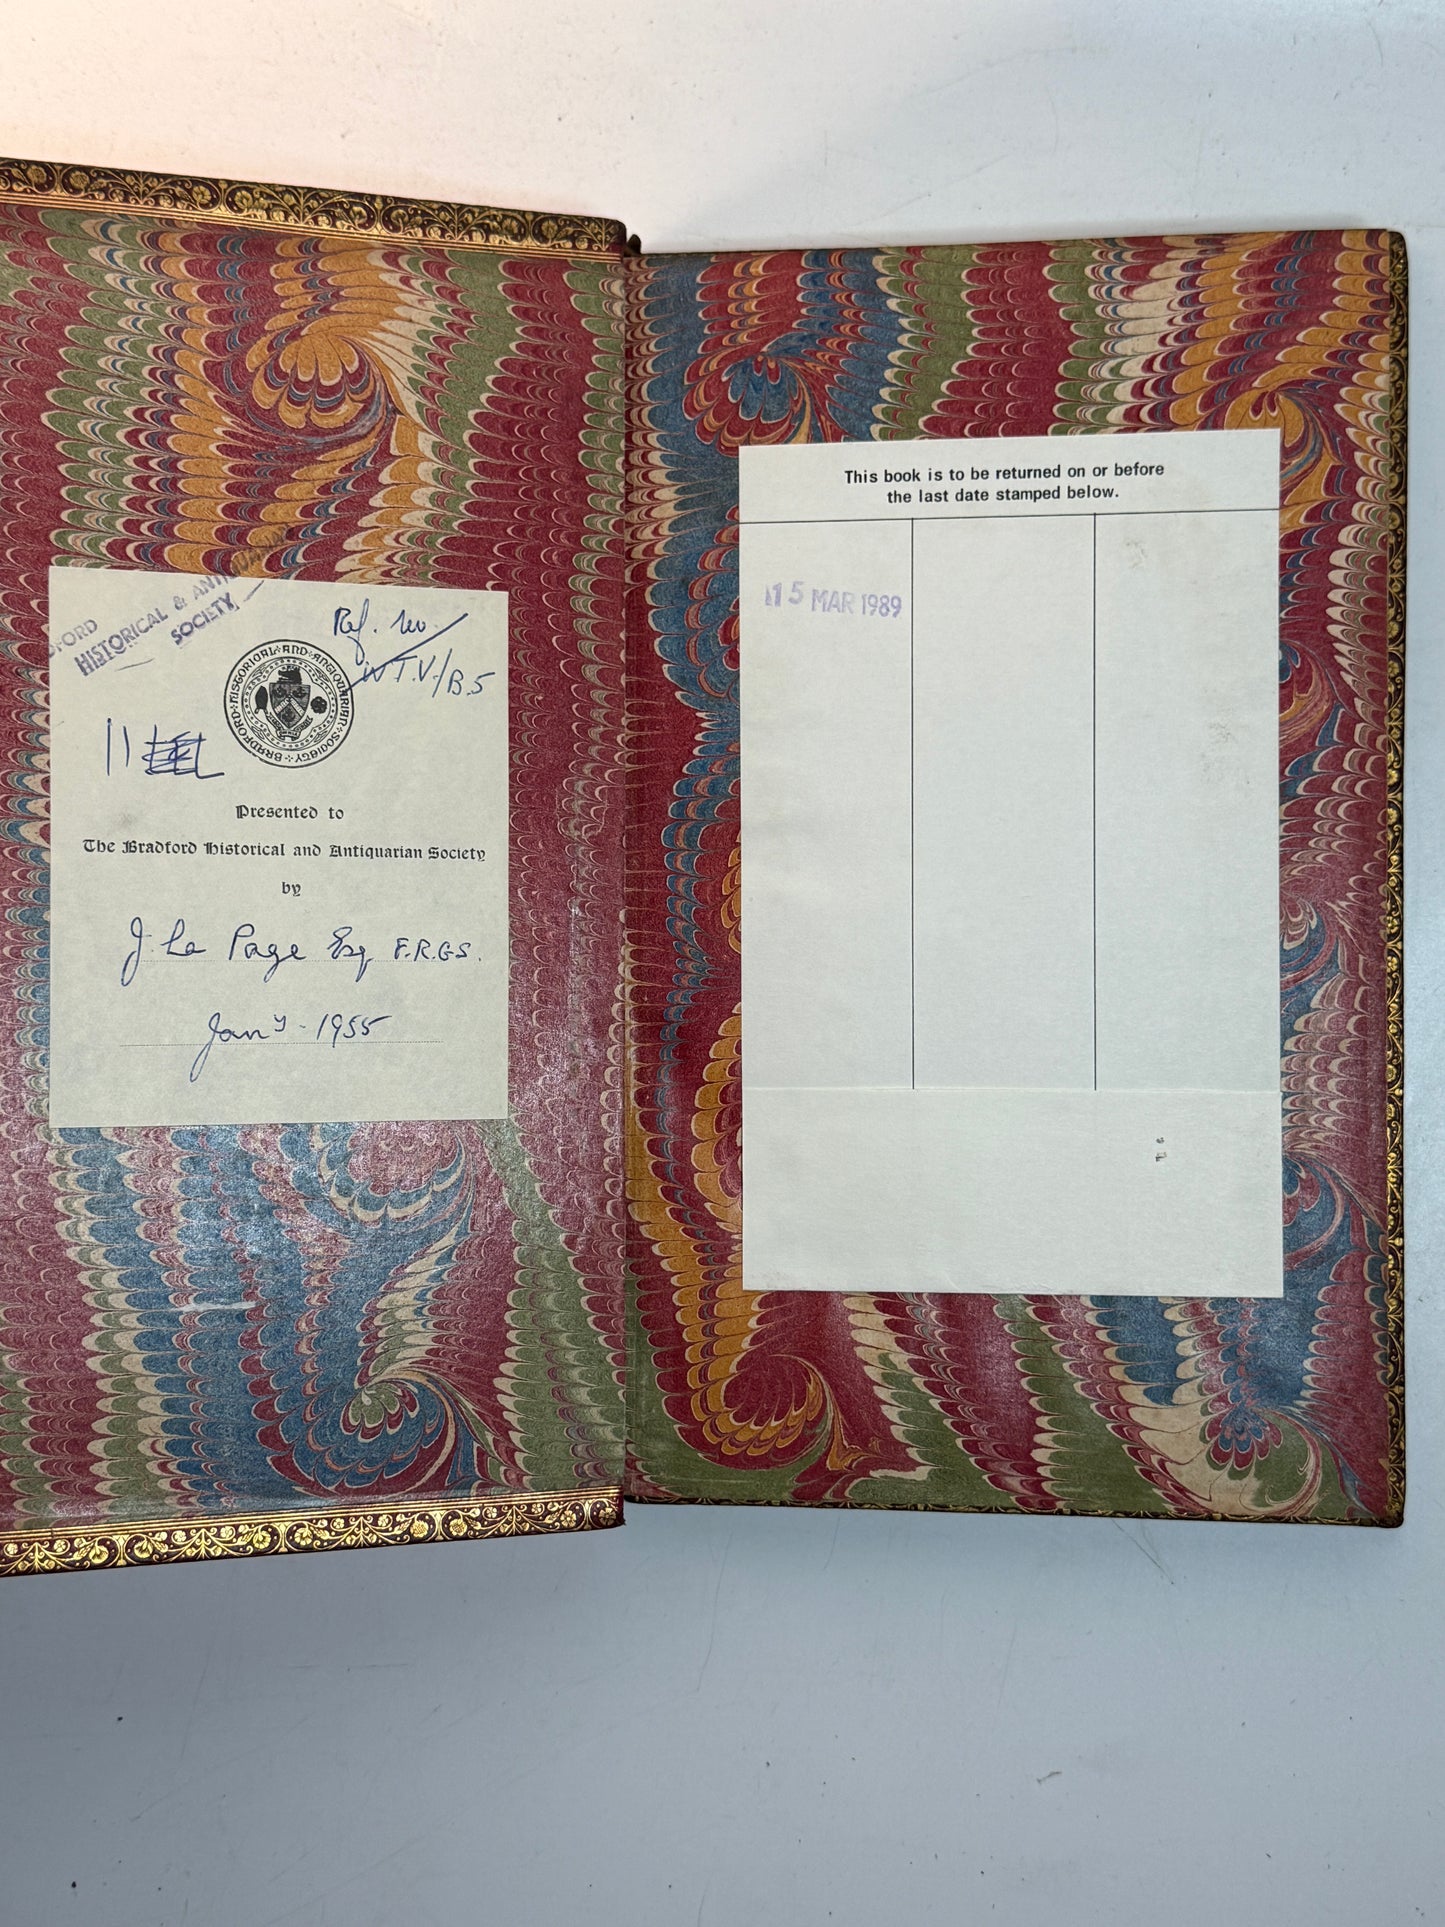 BRADFORD
HISTORICAL & ANTIQUARIAN
SOCIETY
Ref. No.
W T.V./B.5
BRADFORD · HISTORICAL · AND · ANTIQUARIAN · SOCIETY
11
Presented to
The Bradford Historical and Antiquarian Society
by
J. Le Page Esq F.R.G.S.
Jany - 1955
This book is to be returned on or before
the last date stamped below.
15 MAR 1989